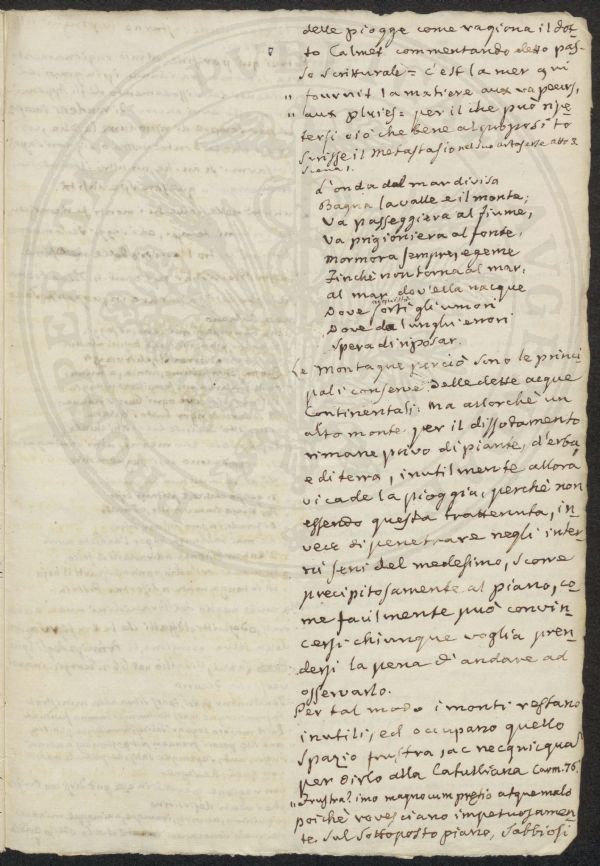 delle piogge come ragiona il dot=
to Calmet commentando detto pas=
so scritturale = c'est la mer qui
" fournit la matiere aux vapeurs,
" aux pluies = per il che può ripe=
tersi ciò che bene al proposito
scrisse il Metastasio nel suo Artaserse atto 3.
scena 1.
L'onda dal mar divisa
Bagna la valle e il monte;
Va passeggiera al fiume,
Va prigioniera al fonte,
Mormora sempre, e geme
Finchè non torna al mar;
al mar dov'ella nacque
acquistò
Dove sortì gli umori
Dove da lunghi errori
spera di riposar.
Le Montagne perciò sono le princi
pali conserve delle dette acque
Continentali: Ma allorchè un
alto monte per il dissodamento
rimane privo di piante, d'erba,
e di terra, inutilmente allora
vi cade la pioggia, perchè non
essendo questa trattenuta, in=
vece di penetrare negli inter=
ni seni del medesimo, scorre
precipitosamente al piano, co=
me facilmente può convin=
cersi chiunque voglia pren=
dersi la pena d'andare ad
osservarlo.
Per tal modo i monti restano
inutili, ed occupano quello
spazio frustra, ac necquicquam
per dirlo alla Catulliana Carm. 76.
" Frustra? imo magno cum pretio atque malo
poichè rovesciano impetuosamen=
te sul sottoposto piano, sabbiosi